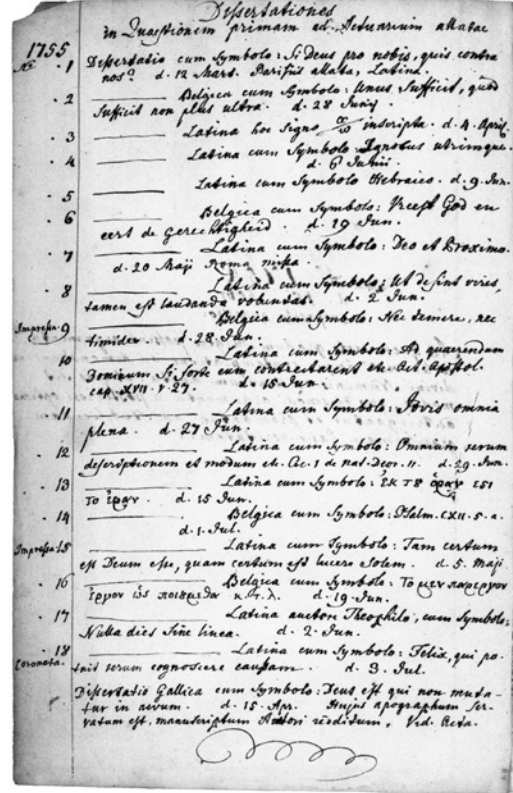 Dissertationes
in Quaestionem primam ad Actuarium allatae
1755
No. 1 Dissertatio cum Symbolo: Si Deus pro nobis, quis contra
nos? d. 12 Mart. Parisiis allata, Latina.
2 Belgica cum Symbolo: Unus sufficit, quod
sufficit non plus ultra. d. 28 Junij
3 Latina hoc signo inscripta. d. 4. April.
4 Latina cum Symbolo Ignotus utrimque.
d. 6 Junii.
5 Latina cum Symbolo Hebraico. d. 9. Jun.
6 Belgica cum Symbolo: Vreest God en
eert de gerechtigheid. d. 19 Jun.
7 Latina cum Symbolo: Deo et Proximo.
d. 20 Maji Roma missa.
8 Latina cum Symbolo: Ut desint vires,
tamen est laudanda voluntas. d. 2 Jun.
Impressa 9 Belgica cum Symbolo: Nec temere, nec
timide d. 28. Jun.
10 Latina cum Symbolo: Ad quaerendum
Dominum Si forte eum contrectarent etc. Act. Apostol.
cap. XVII. v. 27. d. 15 Jun.
11 Latina cum Symbolo: Jovis omnia
plena. d. 27 Jun.
12 Latina cum Symbolo: Omnium rerum
descriptionem et modum etc. Cic. 1 de nat. Deor. 11. d. 29. Jun.
13 Latina cum Symbolo: ἐκ τȣ ὁρᾶν ἐςι
τὸ ἐρᾶν. d. 15 Jun.
14 Belgica cum Symbolo: Psalm. CXII. 5. a.
d. 1. Jul.
Impressa 15 Latina cum Symbolo: Tam certum
est Deum esse, quam certum est lucere Solem. d. 5. Maji
16 Belgica cum Symbolo: Το μεν παρεργον
ἔργον ὡς ποιȣμεθα κ.τ.λ. d. 19. Jun.
17 Latina auctore Theophilo, cum Symbolo:
Nulla dies sine linea. d. 2. Jun.
18 Latina cum Symbolo: Felix, qui po-
Coronata. tuit rerum cognoscere causam. d. 3. Jul.
Dissertatio Gallica cum Symbolo: Deus est qui non muta-
tur in aevum. d. 15. Apr. Hujus apographum ser-
vatum est, manuscriptum Autori redditum, Vid. Acta.